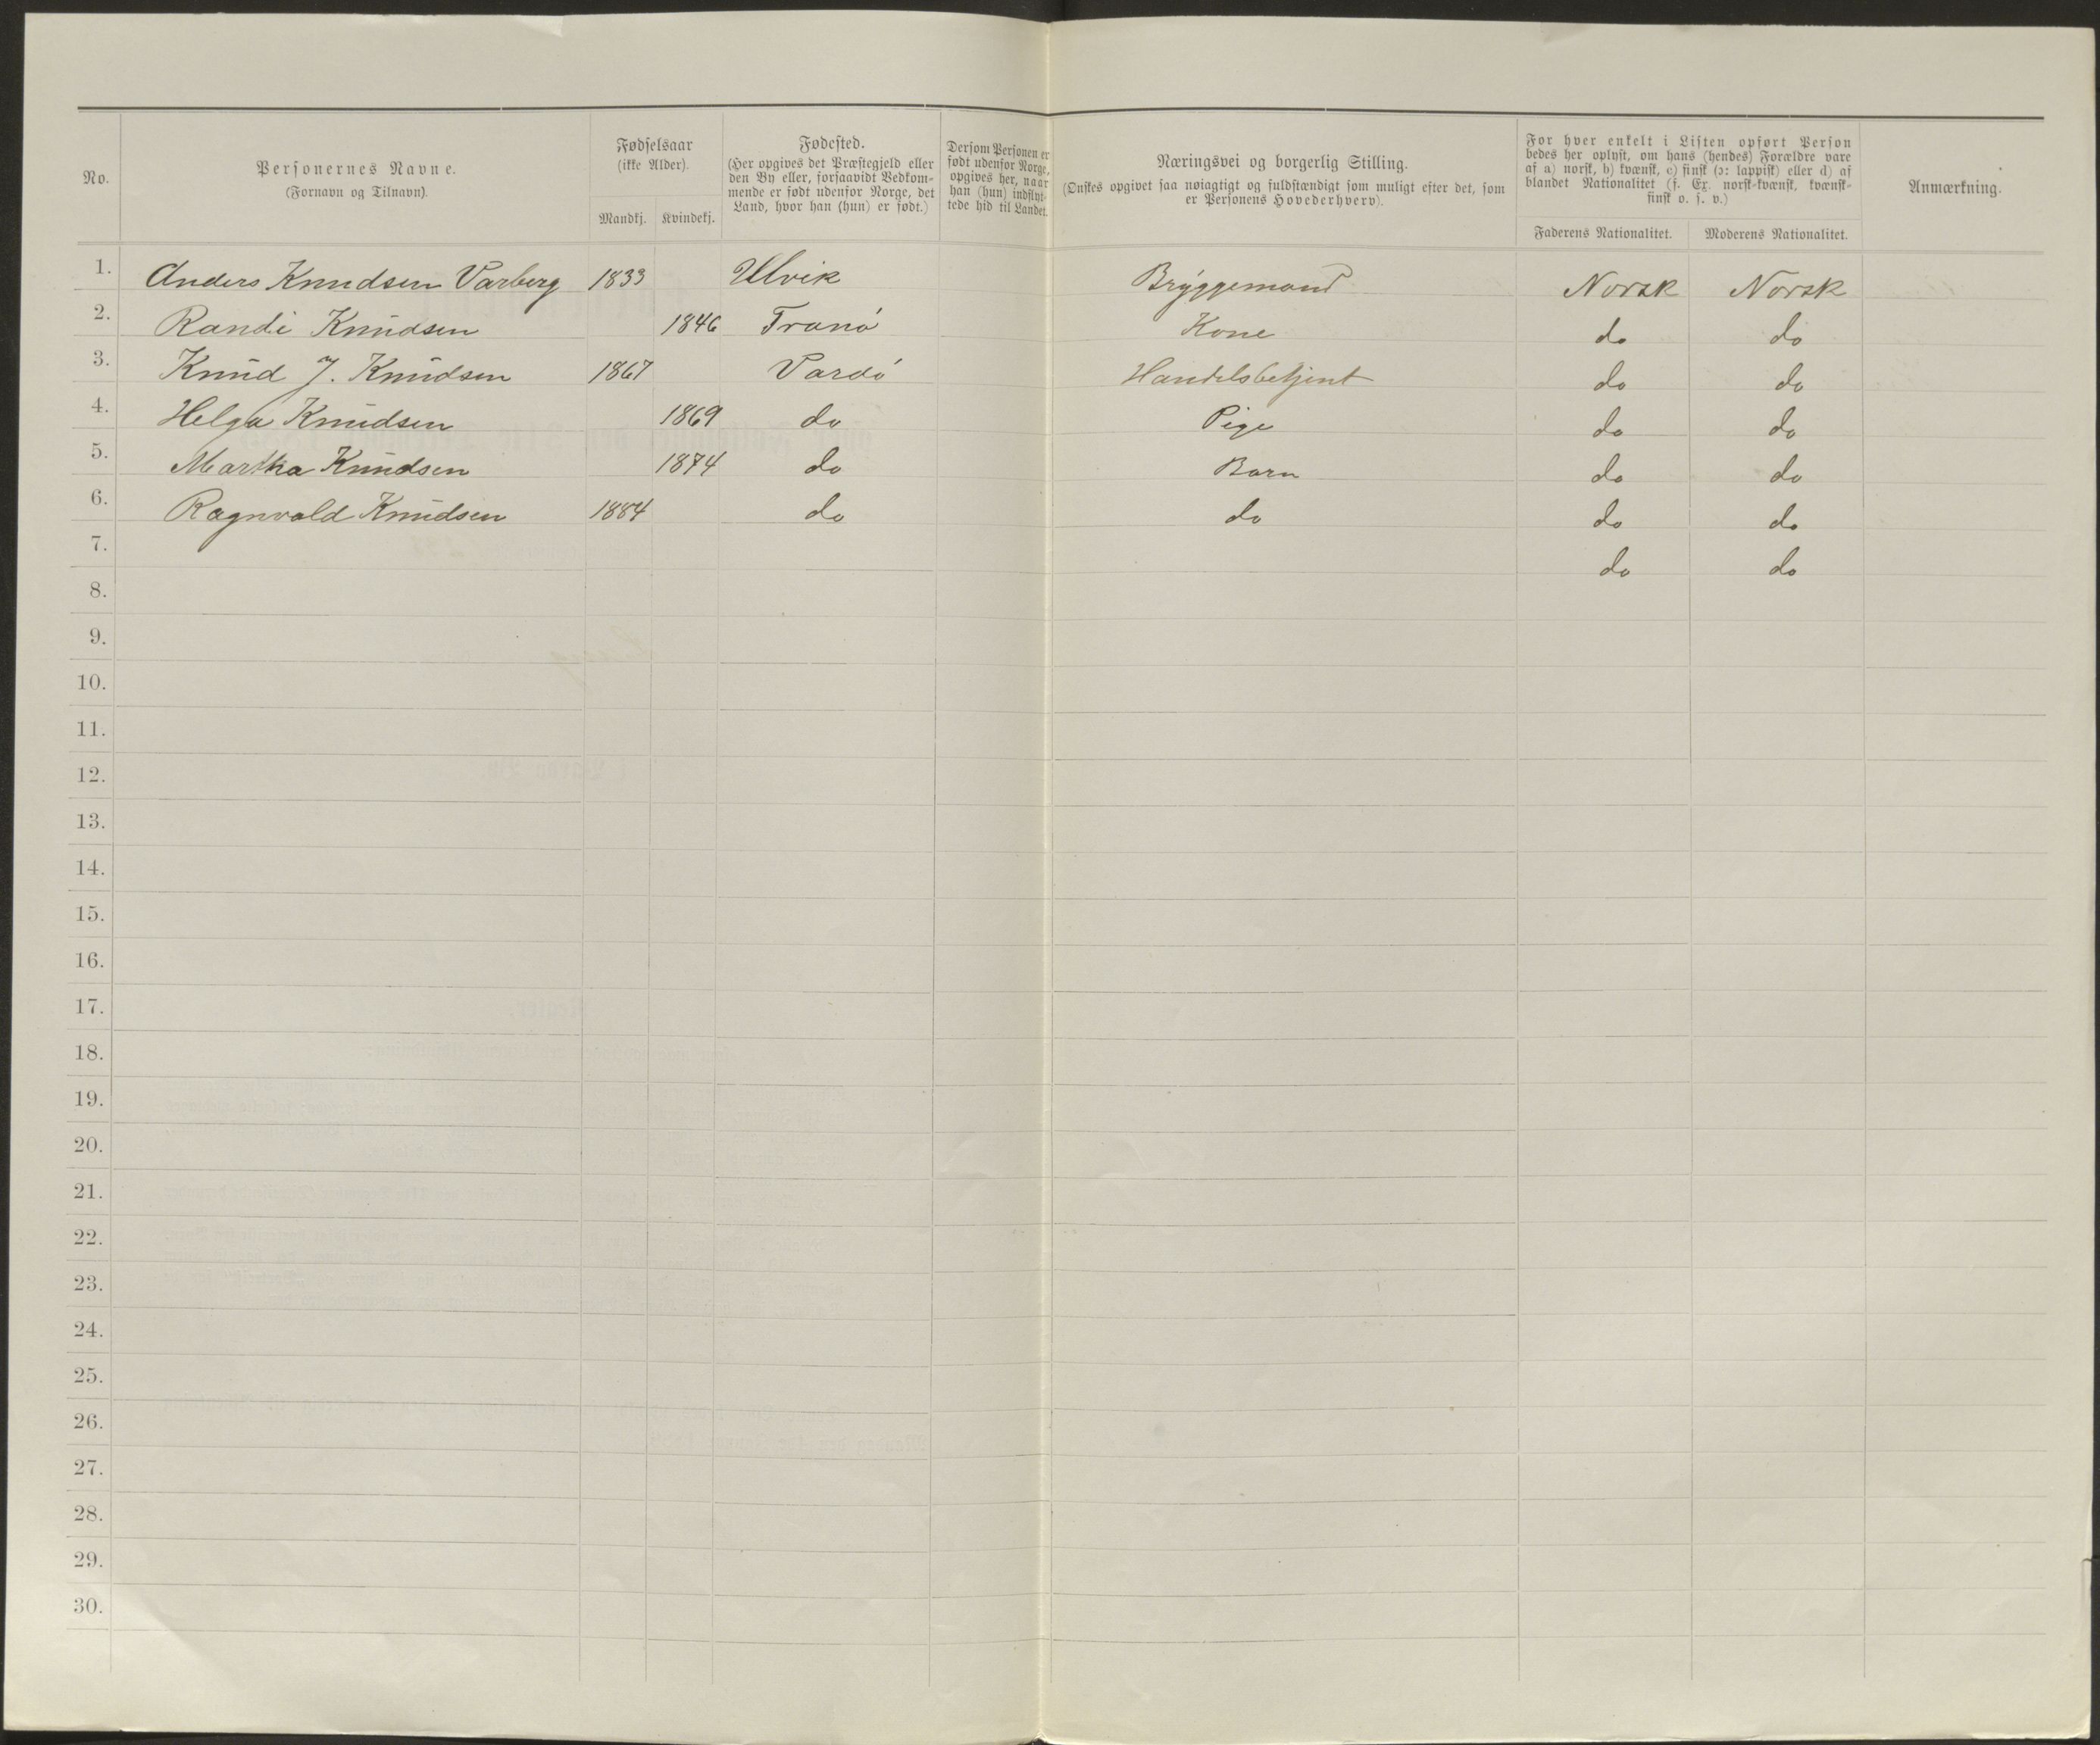 No.
Personernes Navne.
(Fornavn og Tilnavn).
Fødselsaar
(ikke Alder).
Mandkj. Kvindekj.
Fødested.
(Her opgives det Præstegjeld eller
den By eller, forsaavidt Vedkom-
mende er født udenfor Norge, det
Land, hvor han (hun) er født.)
Dersom Personen er
født udenfor Norge,
opgives her, naar
han (hun) indflyt-
tede hid til Landet.
Næringsvei og borgerlig Stilling.
(Ønskes opgivet saa nøiagtigt og fuldstændigt som muligt efter det, som
er Personens Hovederhverv).
For hver enkelt i Listen opført Person
bedes her oplyst, om hans (hendes) Forældre vare
af a) norsk, b) kvænsk, c) finsk (ɔ: lappisk) eller d) af
blandet Nationalitet (f. Ex. norsk-kvænsk, kvænsk-
finsk o. s. v.)
Faderens Nationalitet. Moderens Nationalitet.
Anmærkning.
1. Anders Knudsen Varberg 1833 Ulvik Bryggemand Norsk Norsk
2. Randi Knudsen 1846 Tranö Kone do do
3. Knud J. Knudsen 1867 Vardö Handelsbetjent do do
4. Helga Knudsen 1869 do Pige do do
5. Martha Knudsen 1874 do Barn do do
6. Ragnvald Knudsen 1884 do do do do
7. do do
8.
9.
10.
11.
12.
13.
14.
15.
16.
17.
18.
19.
20.
21.
22.
23.
24.
25.
26.
27.
28.
29.
30.